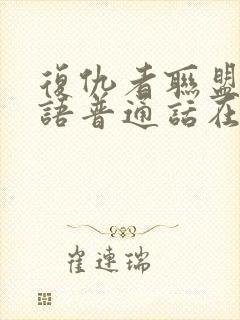 復仇者聯盟
語普通話在
崔連瑞